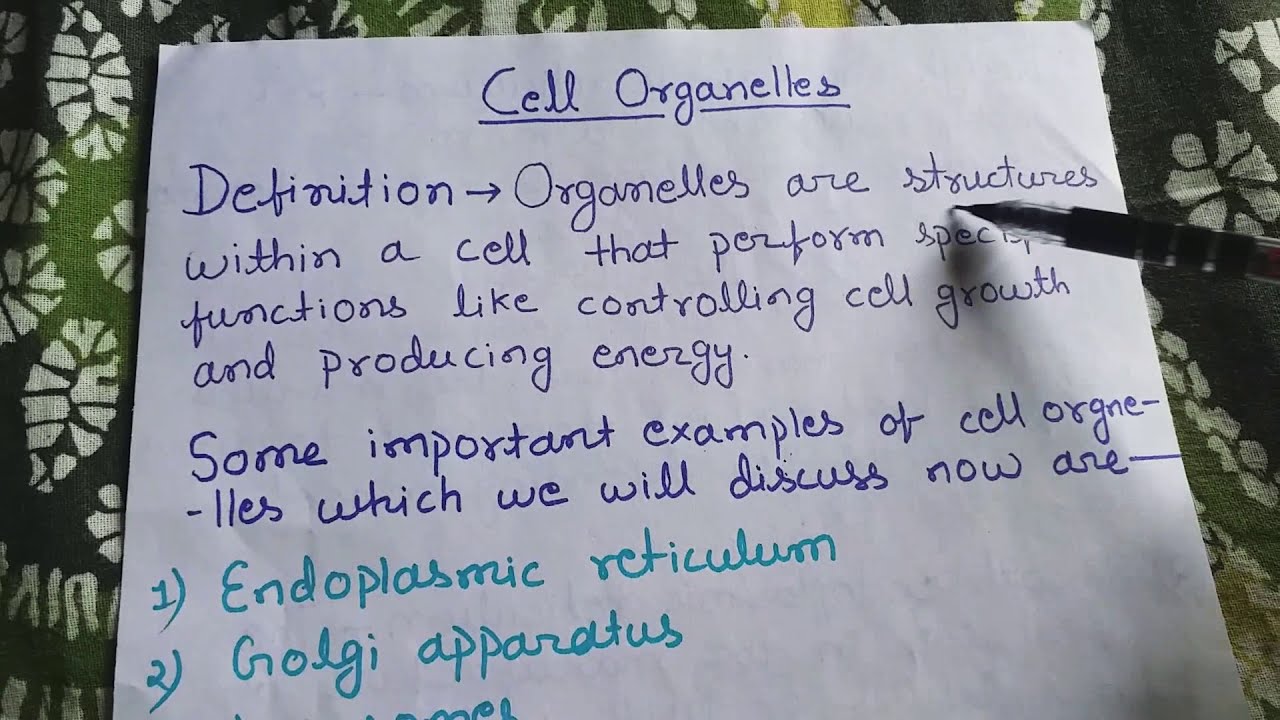 Cell Organelles
Definition → Organelles are structures
within a cell that perform
functions like controlling cell growth
and producing energy.
Some important examples of cell orgne-
-lles which we will discuss now are—
1) Endoplasmic reticulum
2) Golgi apparatus